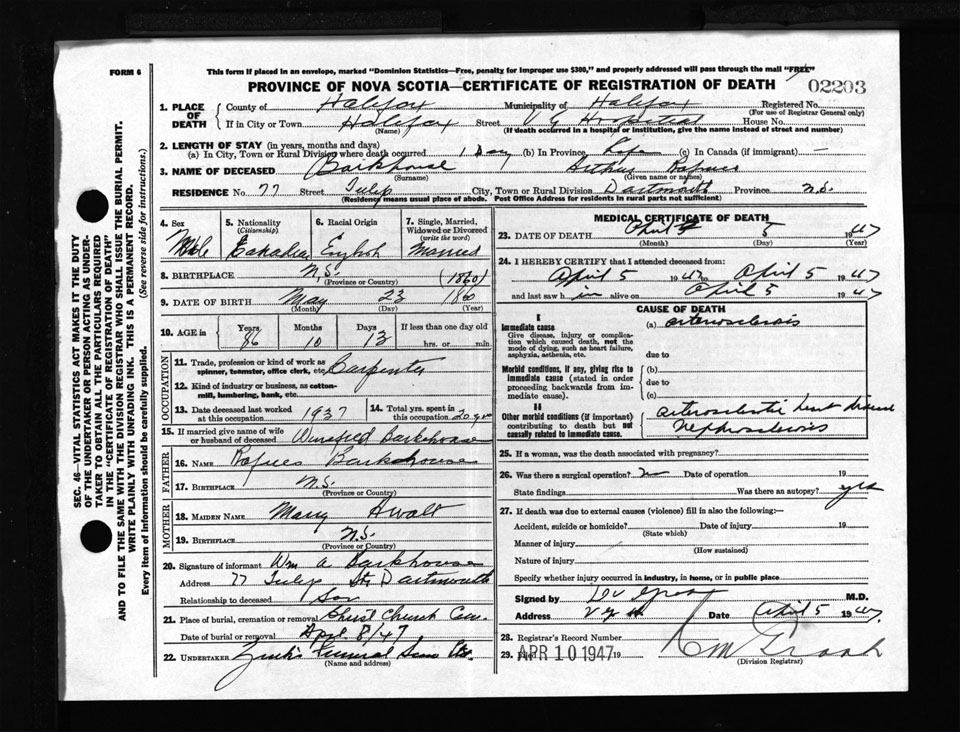 FORM 6
This form if placed in an envelope, marked "Dominion Statistics—Free, penalty for improper use $300," and properly addressed will pass through the mail "FREE"
PROVINCE OF NOVA SCOTIA—CERTIFICATE OF REGISTRATION OF DEATH
02203
1. PLACE OF DEATH
County of Halifax Municipality of Halifax Registered No.
(For use of Registrar General only)
If in City or Town Halifax Street V G Hospital House No.
(Name) (If death occurred in a hospital or institution, give the name instead of street and number)
2. LENGTH OF STAY (in years, months and days)
(a) In City, Town or Rural Division where death occurred 1 Day (b) In Province Life (c) In Canada (if immigrant) —
3. NAME OF DECEASED Barkhouse Arthur Rufus
(Surname) (Given name or names)
RESIDENCE No. 77 Street Tulip City, Town or Rural Division Dartmouth Province N.S.
(Residence means usual place of abode. Post Office Address for residents in rural parts not sufficient)
4. Sex
Male
5. Nationality
(Citizenship)
Canadian
6. Racial Origin
English
7. Single, Married, Widowed or Divorced
(write the word)
Married
8. BIRTHPLACE N.S. (1860)
(Province or Country)
9. DATE OF BIRTH May 23 1860
(Month) (Day) (Year)
10. AGE in Years Months Days If less than one day old
86 10 13 hrs. or min.
OCCUPATION
11. Trade, profession or kind of work as spinner, teamster, office clerk, etc. Carpenter
12. Kind of industry or business, as cotton-mill, lumbering, bank, etc.
13. Date deceased last worked at this occupation 1937
14. Total yrs. spent in this occupation
15. If married give name of wife or husband of deceased Winifred Barkhouse
FATHER
16. NAME Rufus Barkhouse
17. BIRTHPLACE N.S.
(Province or Country)
MOTHER
18. MAIDEN NAME Mary Awalt
19. BIRTHPLACE N.S.
(Province or Country)
20. Signature of informant Wm A. Barkhouse
Address 77 Tulip St. Dartmouth
Relationship to deceased Son
21. Place of burial, cremation or removal Christ Church Cem.
Date of burial or removal Apr. 8/47
22. UNDERTAKER Zink's Funeral
(Name and address)
MEDICAL CERTIFICATE OF DEATH
23. DATE OF DEATH April 5 1947
(Month) (Day) (Year)
24. I HEREBY CERTIFY that I attended deceased from:
April 5 1947 to April 5 1947
and last saw him alive on April 5 1947
CAUSE OF DEATH
I
Immediate cause
Give disease, injury or complication which caused death, not the mode of dying, such as heart failure, asphyxia, asthenia, etc.
(a) arteriosclerosis
due to
Morbid conditions, if any, giving rise to immediate cause (stated in order proceeding backwards from immediate cause).
(b)
due to
(c)
II
Other morbid conditions (if important) contributing to death but not causally related to immediate cause.
arteriosclerotic heart disease
nephrosclerosis
25. If a woman, was the death associated with pregnancy?
26. Was there a surgical operation? no Date of operation 19
State findings Was there an autopsy? yes
27. If death was due to external causes (violence) fill in also the following:—
Accident, suicide or homicide? Date of injury 19
(State which)
Manner of injury
(How sustained)
Nature of injury
Specify whether injury occurred in industry, in home, or in public place
Signed by M.D.
Address V.G.H. Date April 5 1947
28. Registrar's Record Number
29. APR 10 1947 19
(Division Registrar)
SEC. 46—VITAL STATISTICS ACT MAKES IT THE DUTY
OF THE UNDERTAKER OR PERSON ACTING AS UNDER-
TAKER TO OBTAIN ALL THE PARTICULARS REQUIRED
IN THE "CERTIFICATE OF REGISTRATION OF DEATH"
AND TO FILE THE SAME WITH THE DIVISION REGISTRAR WHO SHALL ISSUE THE BURIAL PERMIT.
WRITE PLAINLY WITH UNFADING INK. THIS IS A PERMANENT RECORD.
Every item of information should be carefully supplied. (See reverse side for instructions.)